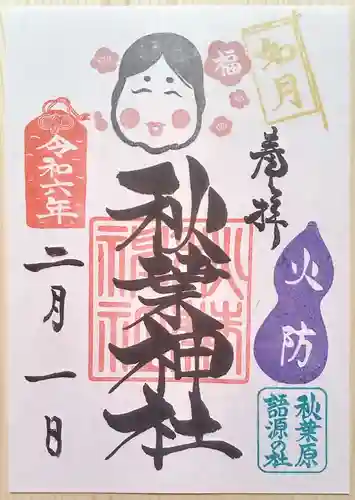 如月
奉拝
火防
秋葉原
語源の社
福
秋葉神社
令和六年
二月一日